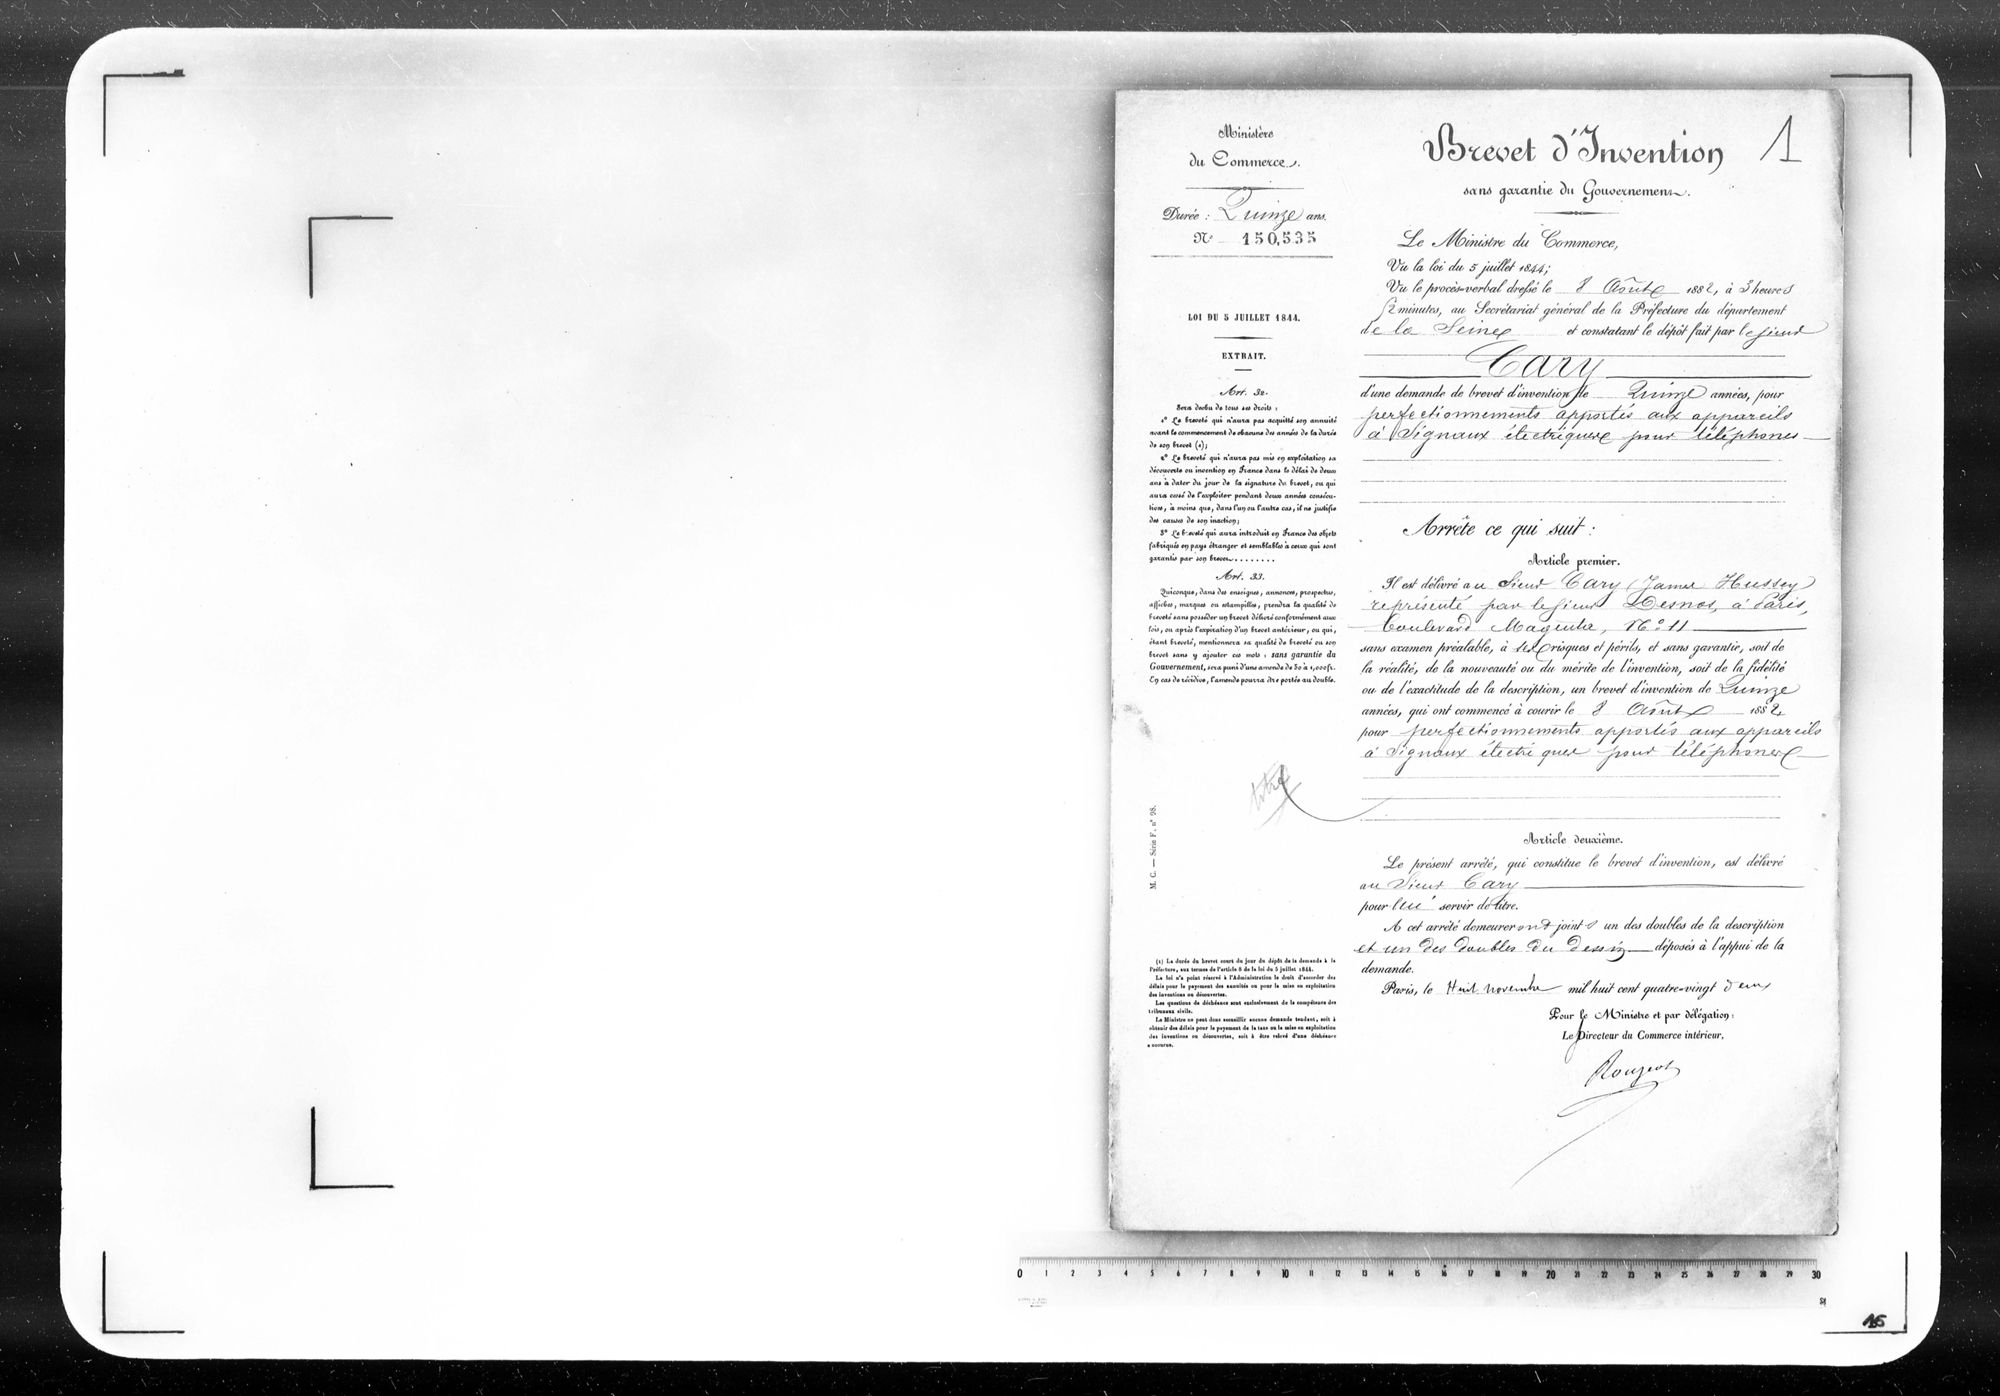 Ministère
du Commerce.
Durée : Quinze ans.
N° 150,535
LOI DU 5 JUILLET 1844.
EXTRAIT.
Art. 32.
Sera déchu de tous ses droits :
1° Le breveté qui n'aura pas acquitté son annuité
avant le commencement de chacune des années de la durée
de son brevet (1);
2° Le breveté qui n'aura pas mis en exploitation sa
découverte ou invention en France dans le délai de deux
ans à dater du jour de la signature du brevet, ou qui
aura cessé de l'exploiter pendant deux années consécu-
tives, à moins que, dans l'un ou l'autre cas, il ne justifie
des causes de son inaction;
3° Le breveté qui aura introduit en France des objets
fabriqués en pays étranger et semblables à ceux qui sont
garantis par son brevet........
Art. 33.
Quiconque, dans des enseignes, annonces, prospectus,
affiches, marques ou estampilles, prendra la qualité de
breveté sans posséder un brevet délivré conformément aux
lois, ou après l'expiration d'un brevet antérieur, ou qui,
étant breveté, mentionnera sa qualité de breveté ou son
brevet sans y ajouter ces mots : sans garantie du
Gouvernement, sera puni d'une amende de 50 à 1,000 fr.
En cas de récidive, l'amende pourra être portée au double.
titre
M. C. — Série F. n° 98.
(1) La durée du brevet court du jour du dépôt de la demande à la
Préfecture, aux termes de l'article 8 de la loi du 5 juillet 1844.
La loi n'a point réservé à l'Administration le droit d'accorder des
délais pour le payement des annuités ou pour la mise en exploitation
des inventions ou découvertes.
Les questions de déchéance sont exclusivement de la compétence des
tribunaux civils.
Le Ministre ne peut donc accueillir aucune demande tendant, soit à
obtenir des délais pour le payement de la taxe ou la mise en exploitation
des inventions ou découvertes, soit à être relevé d'une déchéance
encourue.
Brevet d'Invention
1
sans garantie du Gouvernement.
Le Ministre du Commerce,
Vu la loi du 5 juillet 1844;
Vu le procès-verbal dressé le 8 Août 1882, à 3 heures
minutes, au Secrétariat général de la Préfecture du département
de la Seine et constatant le dépôt fait par le sieur
Cary
d'une demande de brevet d'invention de Quinze années, pour
perfectionnements apportés aux appareils
à Signaux électriques pour téléphones
Arrête ce qui suit :
Article premier.
Il est délivré au Sieur Cary (James Hussey)
représenté par le sieur Desnos, à Paris,
boulevard Magenta, N° 11
sans examen préalable, à ses risques et périls, et sans garantie, soit de
la réalité, de la nouveauté ou du mérite de l'invention, soit de la fidélité
ou de l'exactitude de la description, un brevet d'invention de Quinze
années, qui ont commencé à courir le 8 Août 1882
pour perfectionnements apportés aux appareils
à Signaux électriques pour téléphones
Article deuxième.
Le présent arrêté, qui constitue le brevet d'invention, est délivré
au Sieur Cary
pour lui servir de titre.
A cet arrêté demeureront joints un des doubles de la description
et un des doubles du dessin déposés à l'appui de la
demande.
Paris, le Huit novembre mil huit cent quatre-vingt deux
Pour le Ministre et par délégation :
Le Directeur du Commerce intérieur,
0 1 2 3 4 5 6 7 8 9 10 11 12 13 14 15 16 17 18 19 20 21 22 23 24 25 26 27 28 29 30